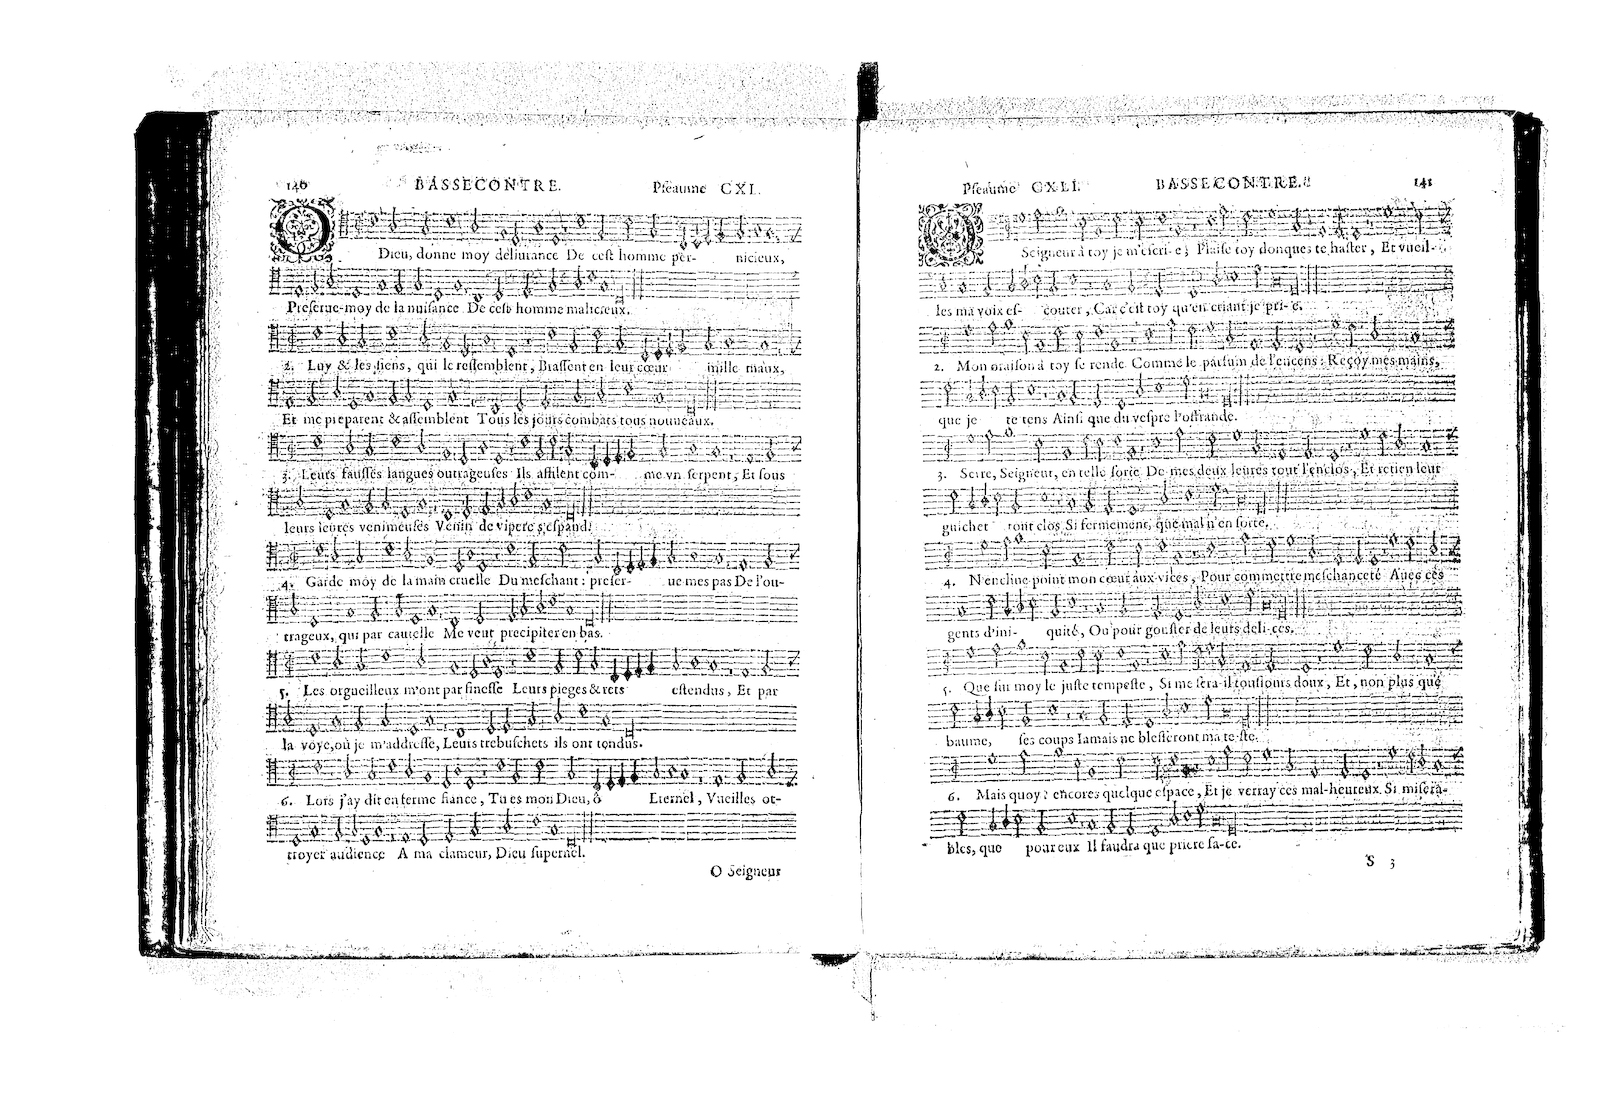 140 BASSECONTRE. Pseaume CXL.
O Dieu, donne moy deliurance De cest homme per- nicieux,
Preserue-moy de la nuisance De cest homme malicieux.
2. Luy & les siens, qui le ressemblent, Brassent en leur cœur mille maux,
Et me preparent & assemblent Tous les jours combats tous nouueaux.
3. Leurs fausses langues outrageuses Ils affilent com- me vn serpent, Et sous
leurs leures venimeuses Venin de vipere s'espand.
4. Garde moy de la main cruelle Du meschant: preser- ue mes pas De l'ou-
trageux, qui par cautelle Me veut precipiter en bas.
5. Les orgueilleux m'ont par finesse Leurs pieges & rets estendus, Et par
la voye, où je m'addresse, Leurs trebuschets ils ont tendus.
6. Lors j'ay dit en ferme fiance, Tu es mon Dieu, ô Eternel, Vueilles oc-
troyer audience A ma clameur, Dieu supernel.
O Seigneur
Pseaume CXLI. BASSECONTRE. 141
O Seigneur à toy je m'escri-e; Plaise toy donques te haster, Et vueil-
les ma voix es- couter, Car c'est toy qu'en criant je pri-e.
2. Mon oraison à toy se rende Comme le parfum de l'encens: Reçoy mes mains,
que je te tens Ainsi que du vespre l'offrande.
3. Serre, Seigneur, en telle sorte De mes deux leures tout l'enclos, Et retien leur
guichet tout clos Si fermement, que mal n'en sorte.
4. N'encline point mon cœur aux vices, Pour commettre meschanceté Auec ces
gents d'ini- quité, Ou pour gouster de leurs deli-ces.
5. Que sur moy le juste tempeste, Si me sera-il tousiours doux, Et, non plus que
baume, ses coups Iamais ne blesseront ma te-ste.
6. Mais quoy? encores quelque espace, Et je verray ces mal-heureux Si misera-
bles, que pour eux Il faudra que priere fa-ce.
S 3